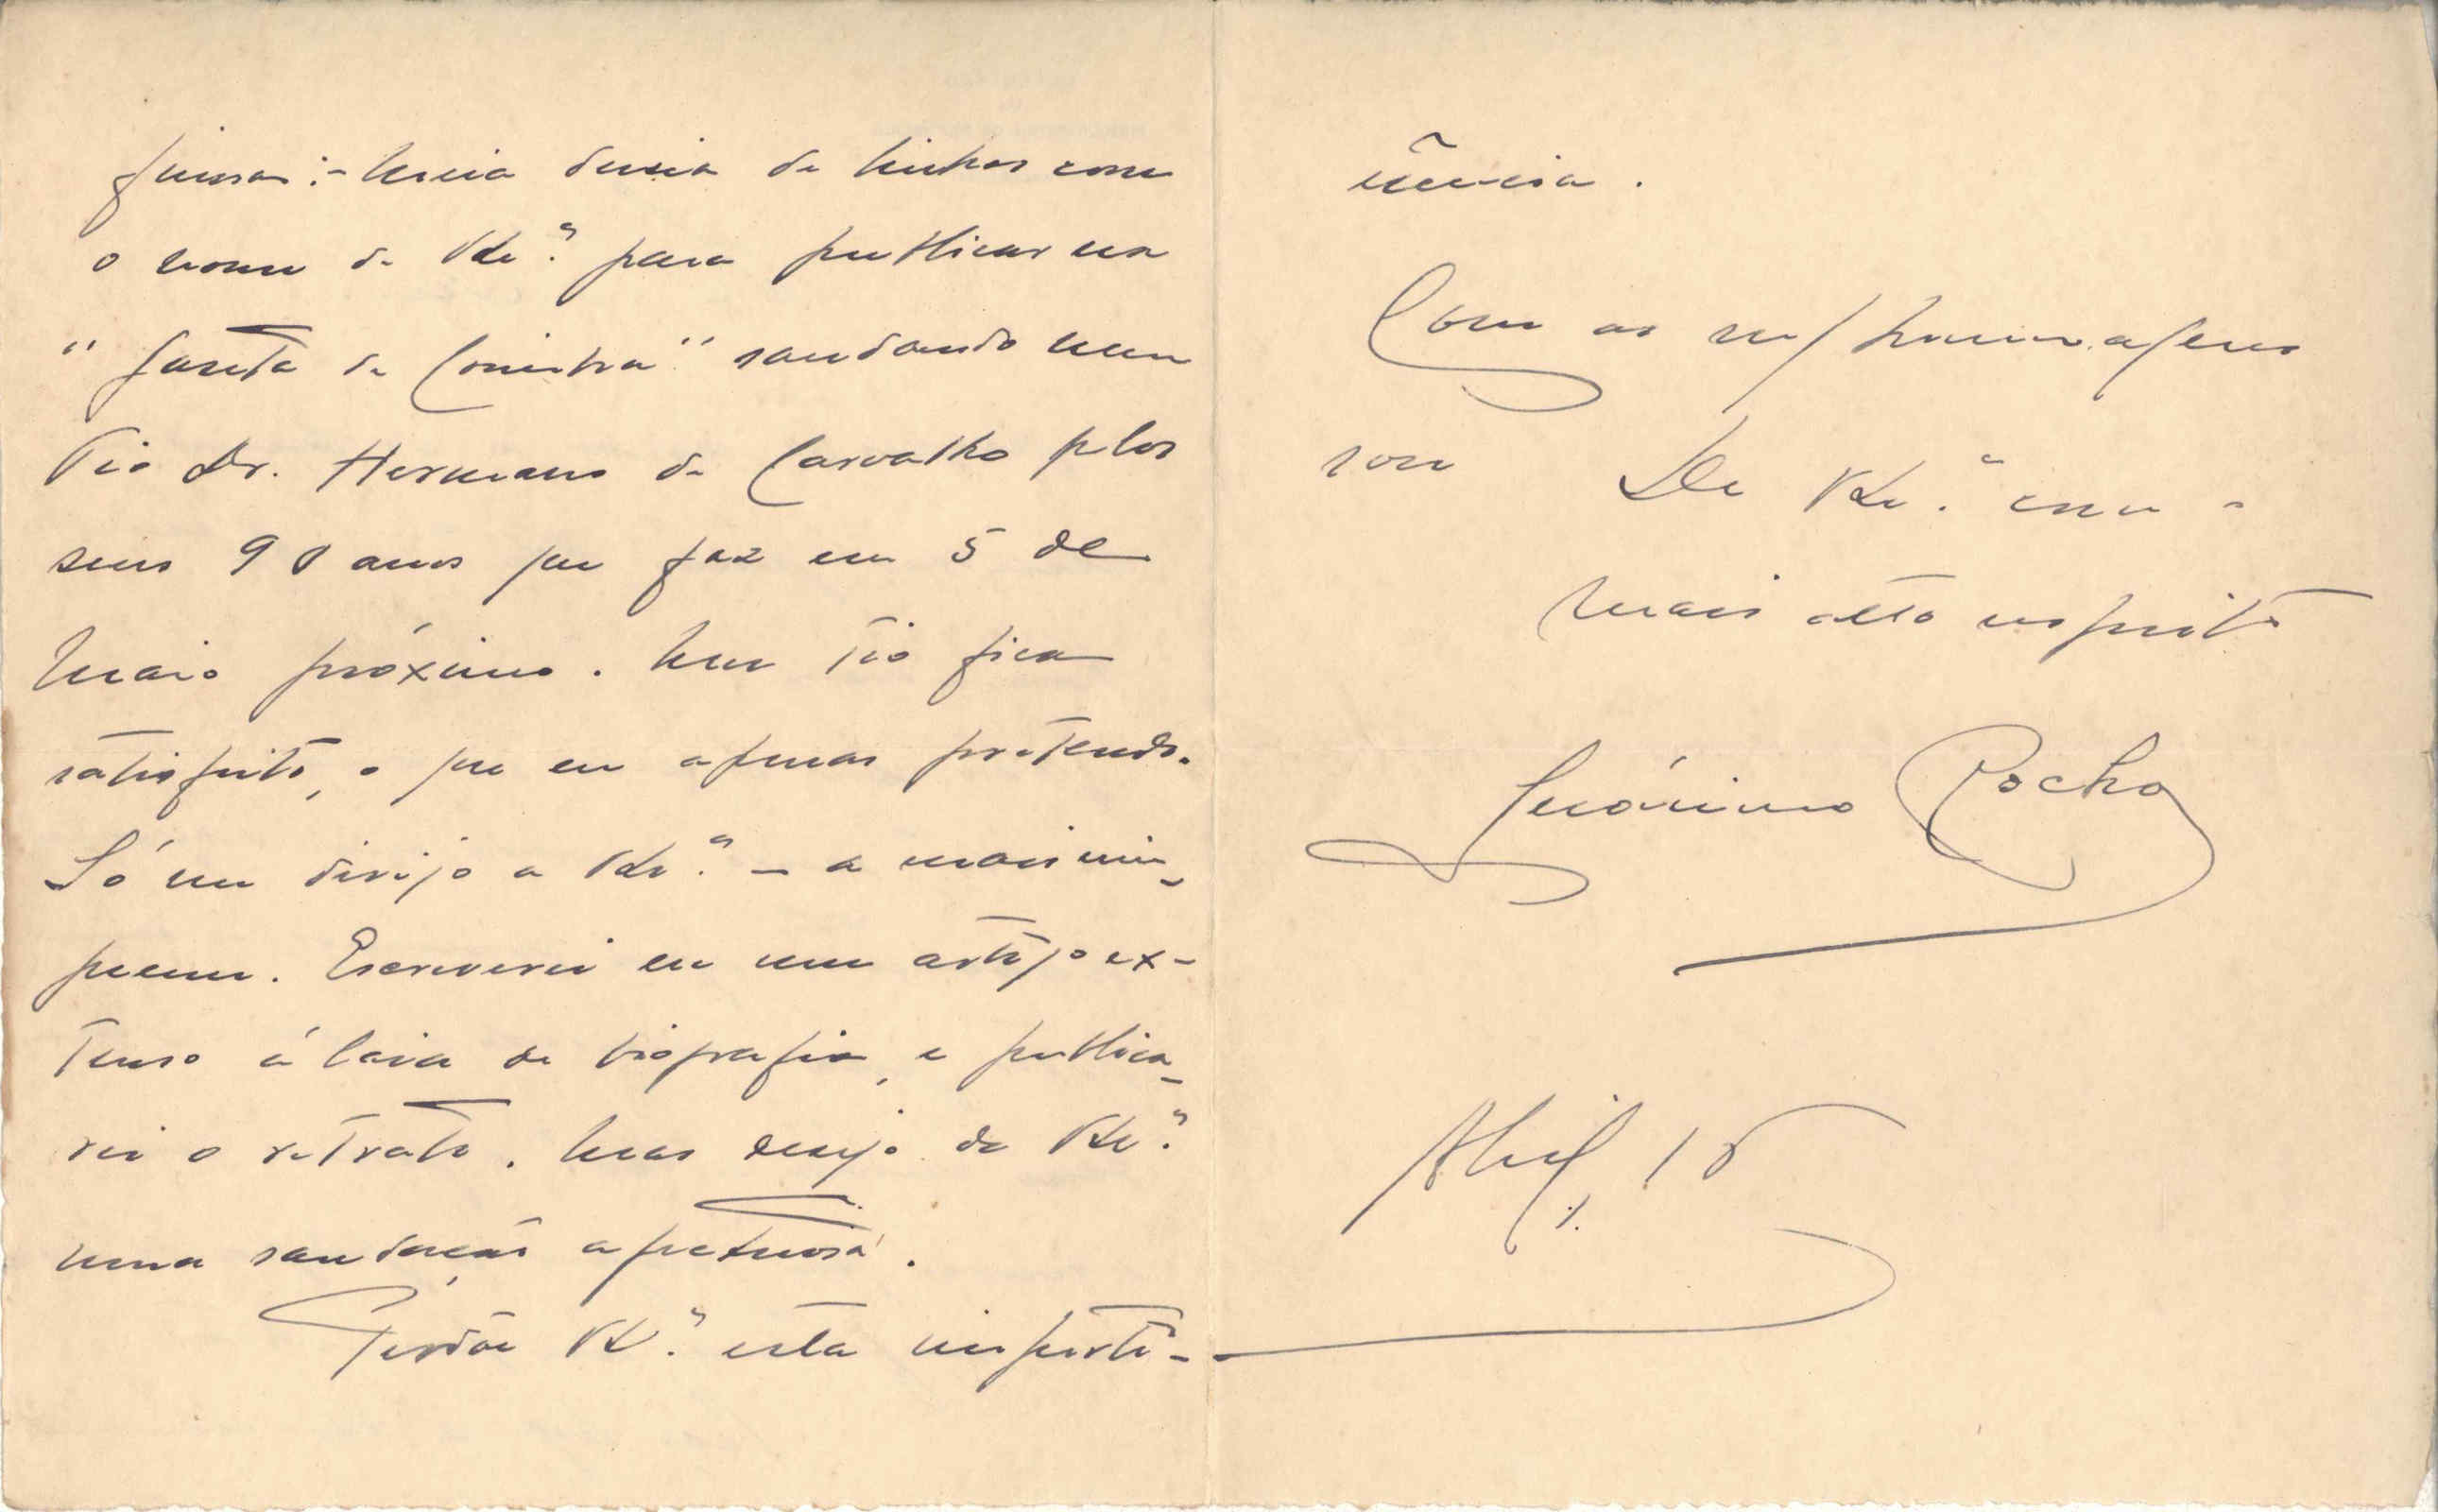 fineza:- Meia duzia de linhas com
o nome de V. Ex.ª para publicar na
"Gazeta de Coimbra" saudando meu
Tio Dr. Hermano de Carvalho plos
seus 90 anos que faz em 5 de
Maio próximo. Meu Tio fica
satisfeito, o que eu apenas pretendo.
Só me dirijo a V. Ex.ª - a mais nin-
guem. Escreverei eu um artigo ex-
tenso á laia de biografia, e publica-
rei o retrato. Mas desejo de V. Ex.ª
uma saudação afectuosa.
Perdôe V. Ex.ª esta imperti-
nência.
Com as m/ homenagens
sou De V. Ex.ª com o
mais alto respeito
Jerónimo Rocha
Abril, 18